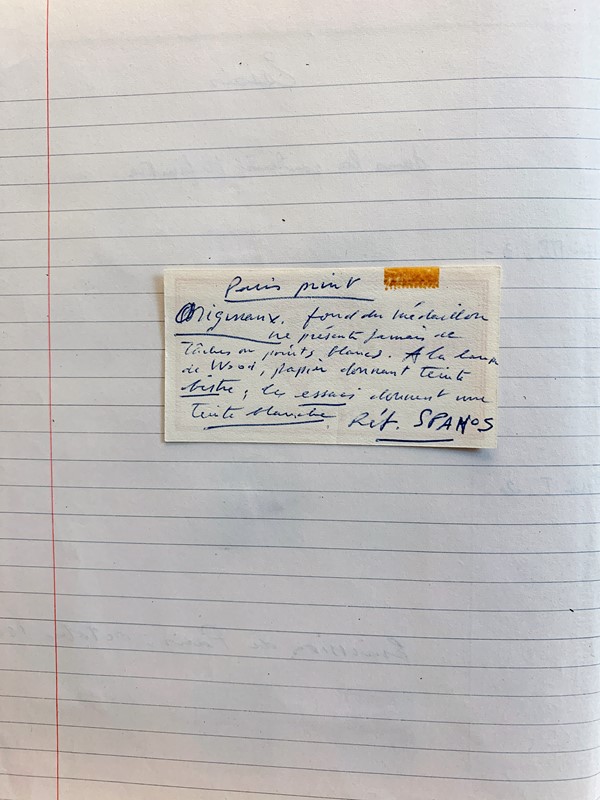 Paris print
Originaux. fond du médaillon
ne présente jamais de
tâches ou points blancs. A la lampe
de Wood, papier donnant teinte
bistre ; les essais donnent une
teinte blanche. Réf. SPANOS